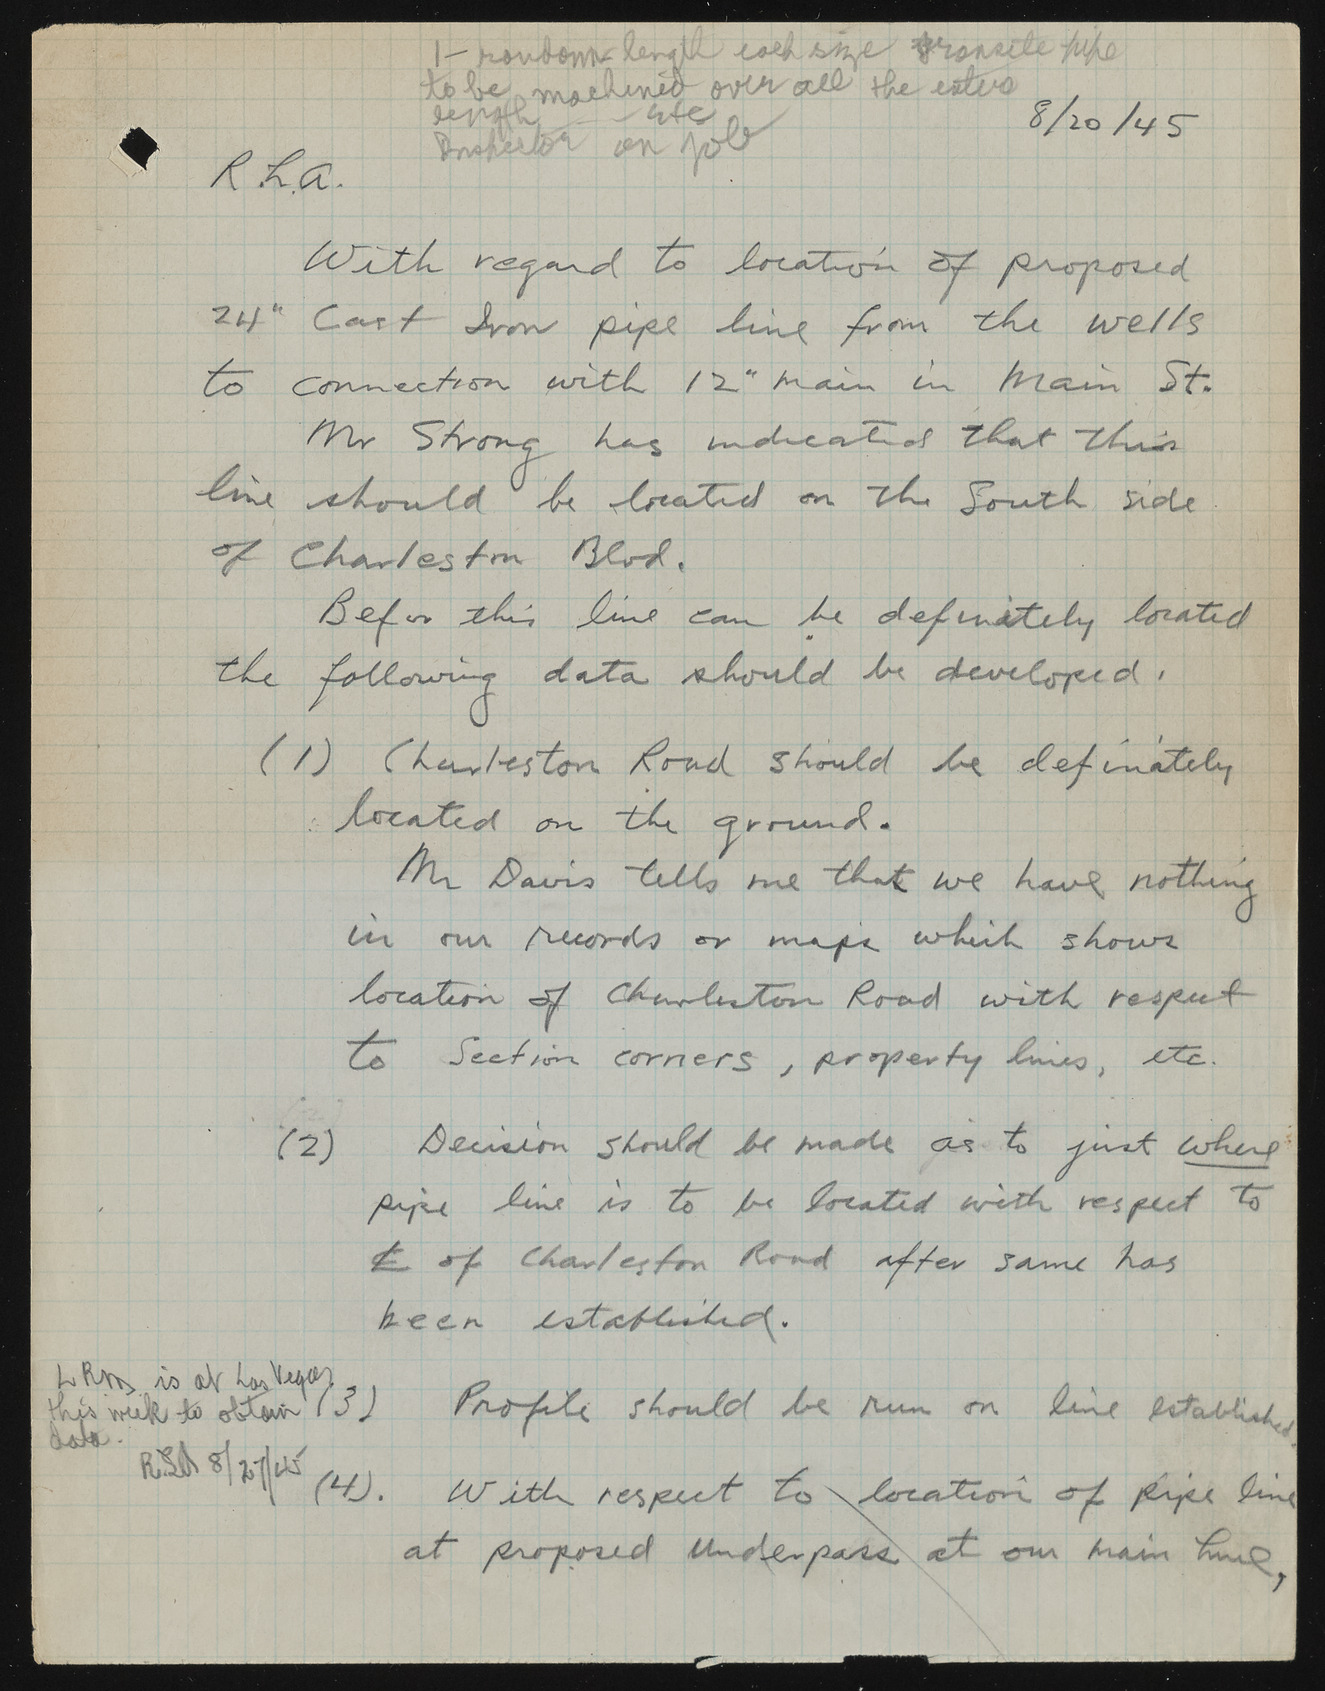 1- random length each size transite pipe
to be machined over all the extra
length etc
Inspector on job
8/20/45
R.L.A.
With regard to location of proposed
24" Cast Iron pipe line from the wells
to connection with 12" main in Main St.
Mr Strong has indicated that this
line should be located on the South side
of Charleston Blvd.
Befor this line can be definitely located
the following data should be developed.
(1) Charleston Road should be definately
located on the ground.
Mr Davis tells me that we have nothing
in our records or maps which shows
location of Charleston Road with respect
to Section corners, property lines, etc.
(2) Decision should be made as to just where
pipe line is to be located with respect to
℄ of Charleston Road after same has
been established.
LRM is at Las Vegas
this week to obtain
data.
R.L.A 8/27/45
(3) Profile should be run on line established.
(4). With respect to location of pipe line
at proposed Underpass at our main line,